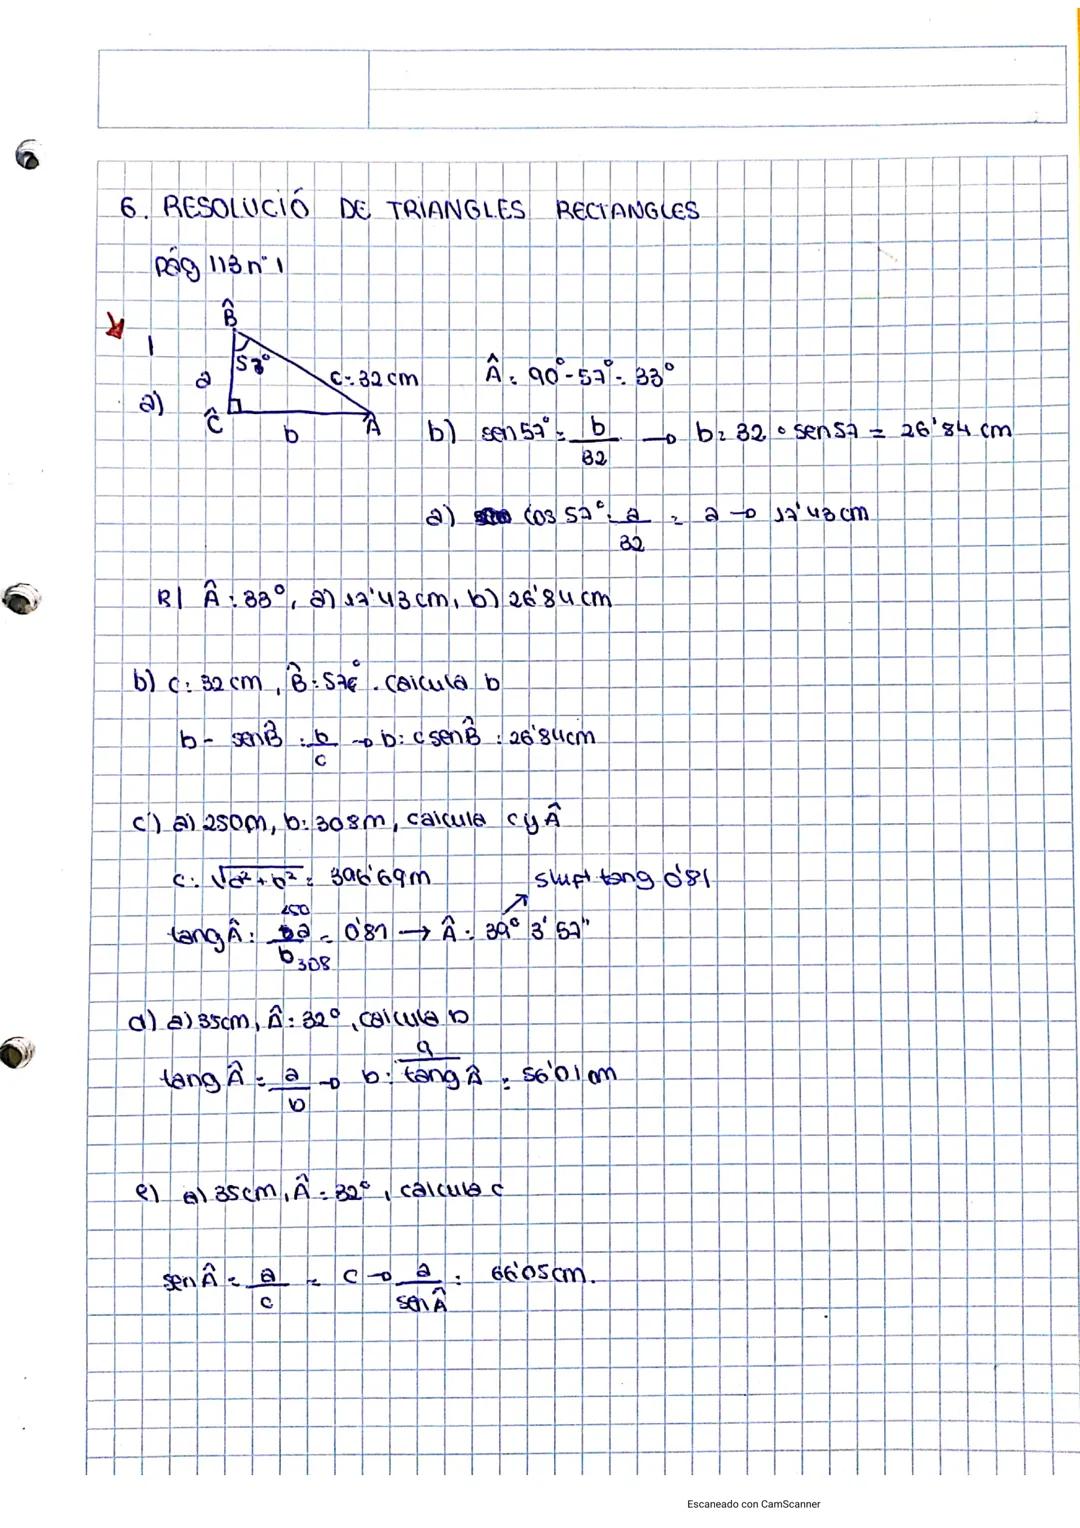 6. RESOLUCIÓ DE TRIANGLES RECTANGLES
pág 113 nº 1
1
a)
B̂
57°
a
c = 32 cm
Ĉ
b
Â
Â = 90° - 57° = 33°
b) sen 57° = b/32 → b = 32 · sen 57 = 26'84 cm
a) cos 57° = a/32 = a → 17'43 cm
R| Â = 33°, a) 17'43 cm, b) 26'84 cm
b) c = 32 cm, B̂ = 57°. Calcula b
b - sen B̂ = b/c → b = c sen B̂ = 26'84 cm
c) a) 250m, b = 308m, calcula c y Â
c = √a² + b² = 396'69 m
shift tang 0'81
tang Â = a/b 250 308 = 0'81 → Â = 39° 3' 57"
d) a) 35cm, Â = 32°, calcula b
tang Â = a/b → b = a/tang Â = 56'01 cm
e) a) 35cm, Â = 32°, calcula c
sen Â = a/c = c → a/sen Â = 66'05 cm.
Escaneado con CamScanner